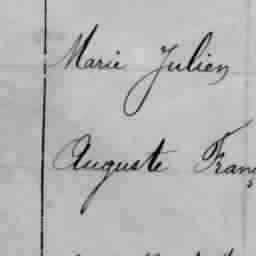 Marie Julien
Auguste Franç